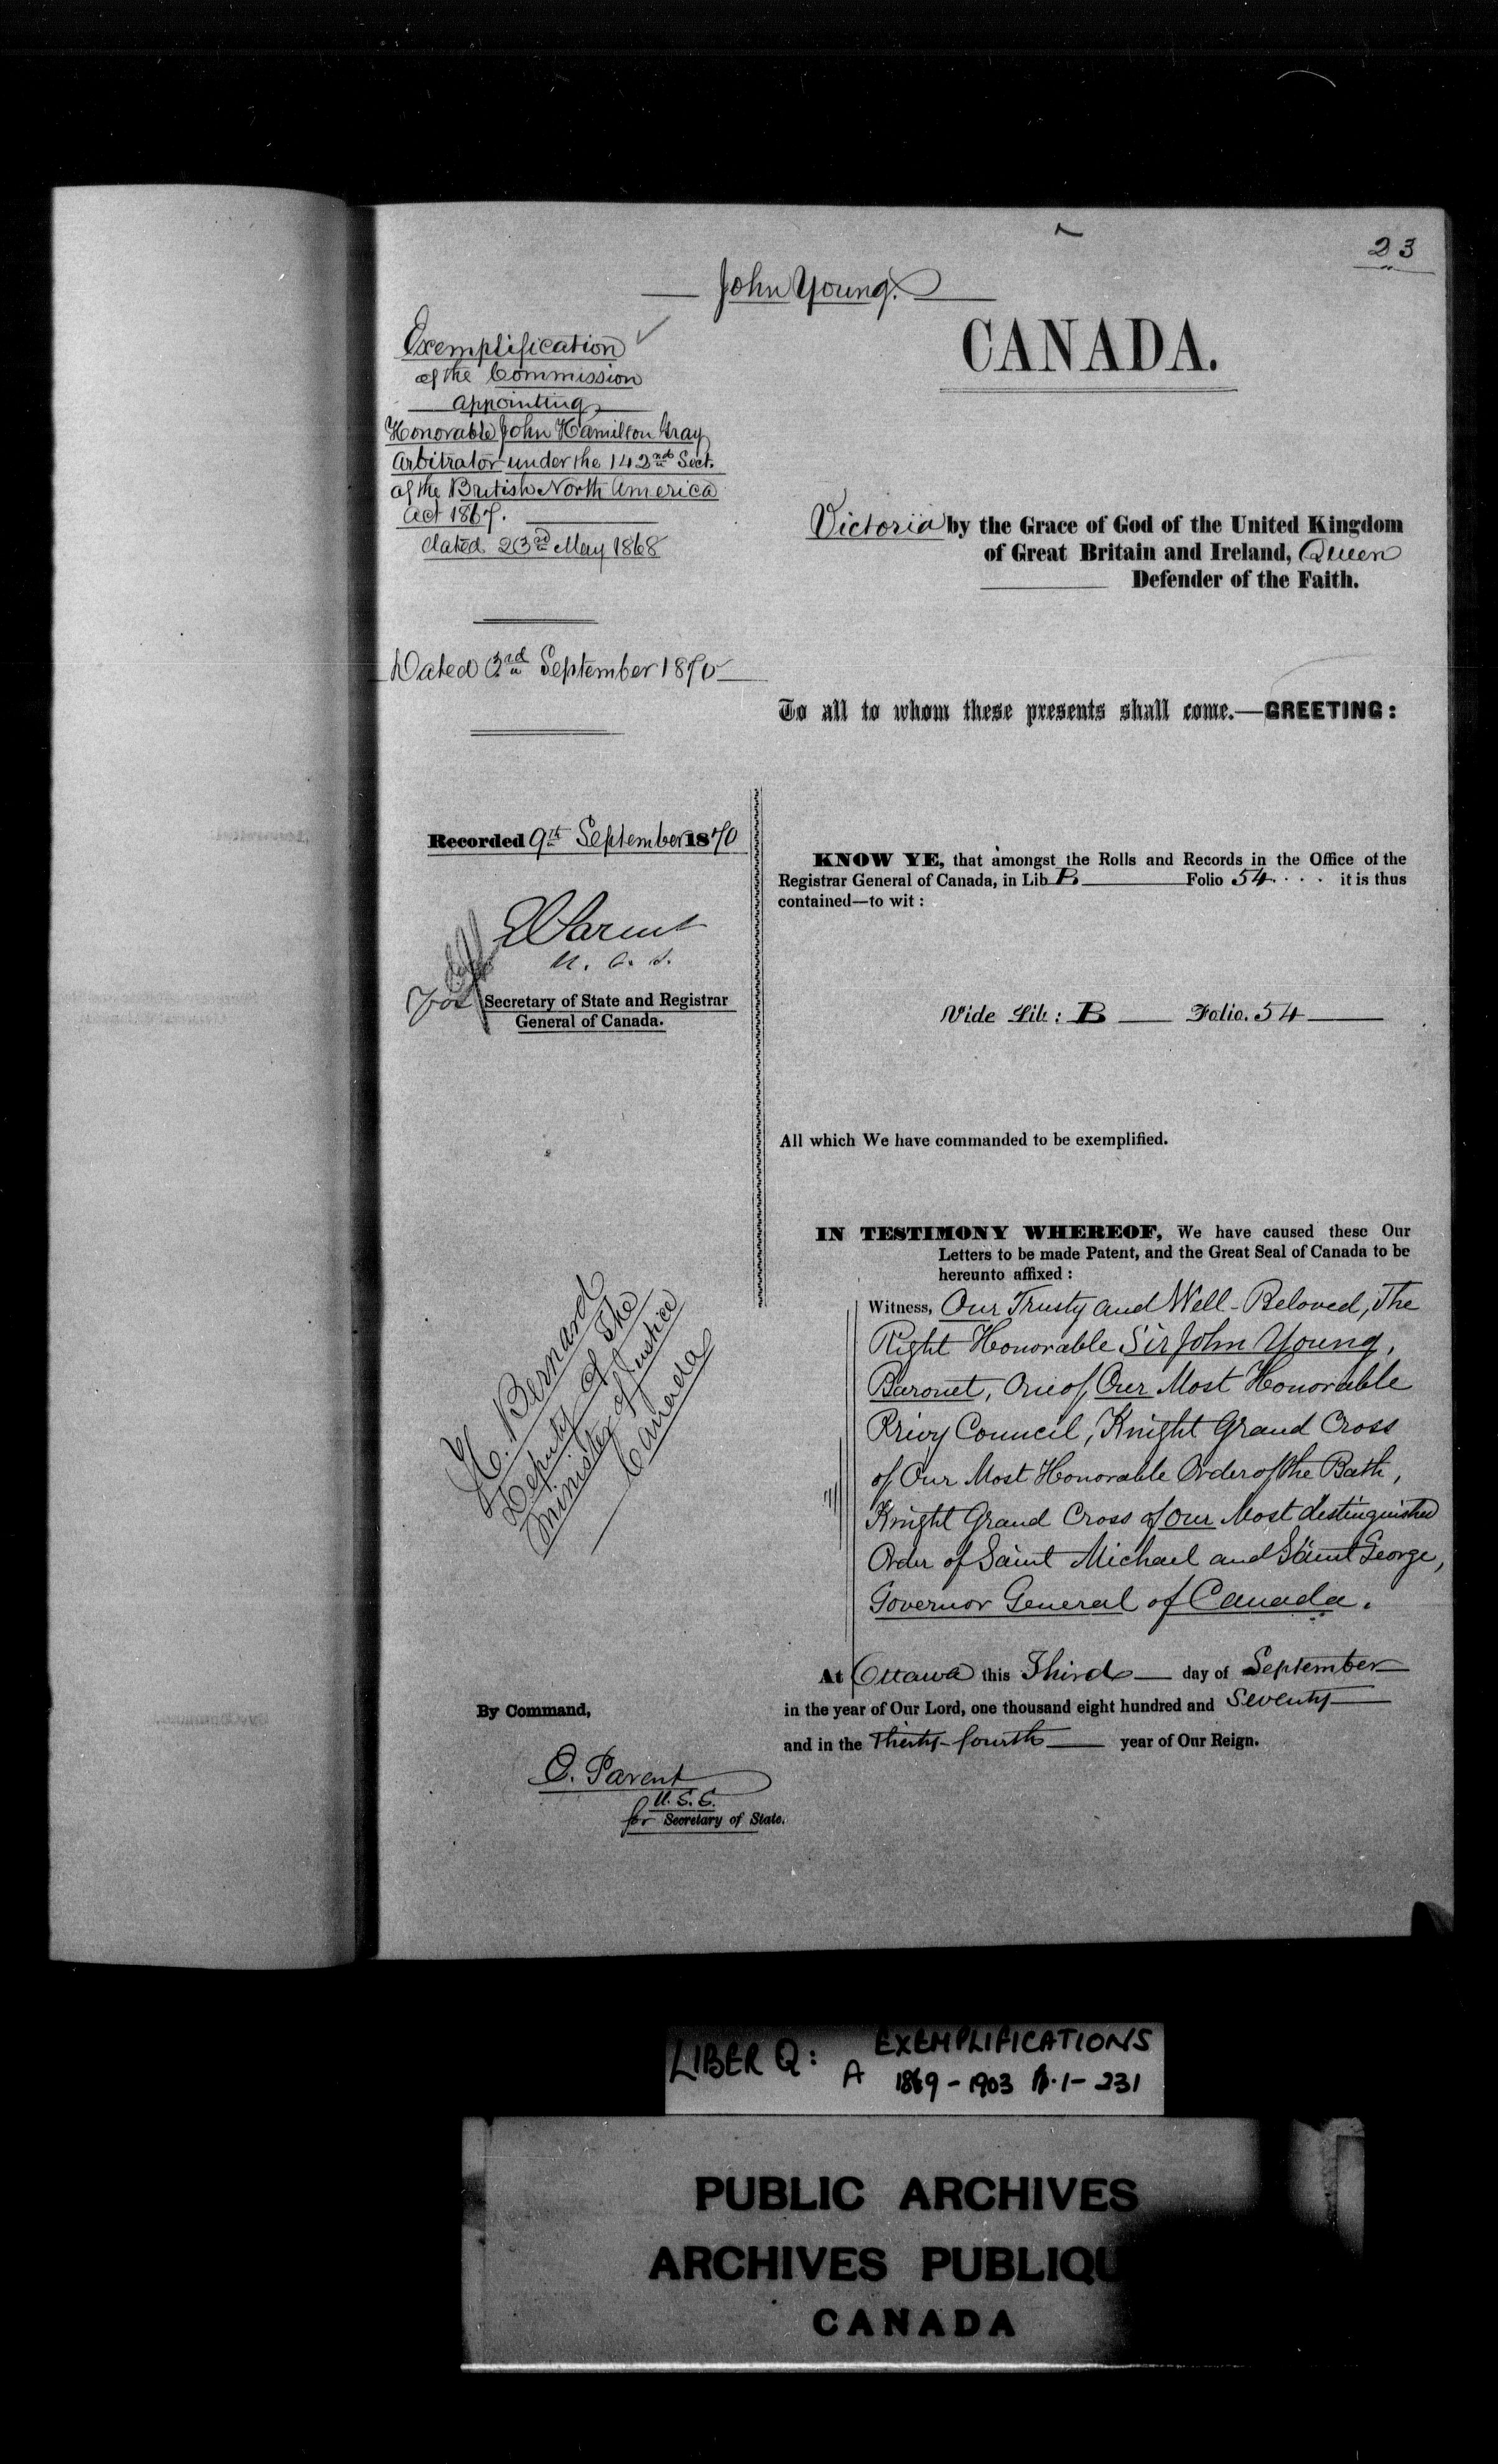 23
John Young.
CANADA.
Exemplification
of the Commission
appointing
Honorable John Hamilton Gray
Arbitrator under the 142nd Sect.
of the British North America
Act 1867.
dated 23rd May 1868
Victoria by the Grace of God of the United Kingdom
of Great Britain and Ireland, Queen
Defender of the Faith.
Dated 3rd September 1870
To all to whom these presents shall come.—GREETING:
Recorded 9th September 1870
KNOW YE, that amongst the Rolls and Records in the Office of the
Registrar General of Canada, in Lib B Folio 54 . . . it is thus
contained—to wit :
Parent
for Secretary of State and Registrar
General of Canada.
Vide Lib : B Folio. 54
All which We have commanded to be exemplified.
IN TESTIMONY WHEREOF, We have caused these Our
Letters to be made Patent, and the Great Seal of Canada to be
hereunto affixed :
Witness, Our Trusty and Well-Beloved, The
Right Honorable Sir John Young,
Baronet, One of Our Most Honorable
Privy Council, Knight Grand Cross
of Our Most Honorable Order of the Bath,
Knight Grand Cross of Our Most distinguished
Order of Saint Michael and Saint George,
Governor General of Canada.
H. Bernard
Deputy of the
Minister of Justice
Canada
At Ottawa this Third day of September
in the year of Our Lord, one thousand eight hundred and Seventy
and in the Thirty-fourth year of Our Reign.
By Command,
Parent
U. S. S.
for Secretary of State.
LIBER Q: A EXEMPLIFICATIONS
1869-1903 p.1-231
PUBLIC ARCHIVES
ARCHIVES PUBLIQU
CANADA